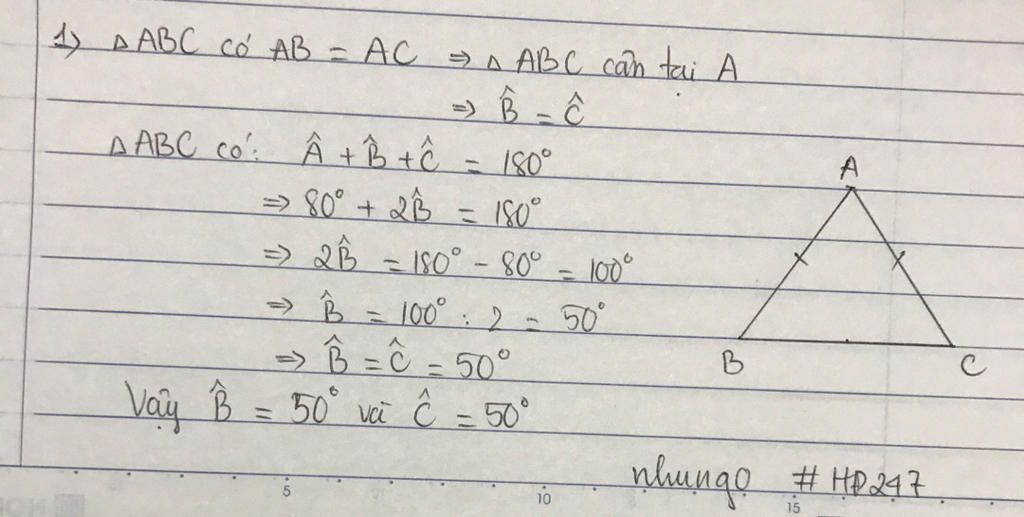 1) ΔABC có AB = AC ⇒ ΔABC cân tại A
⇒ B̂ = Ĉ
ΔABC có: Â + B̂ + Ĉ = 180°
⇒ 80° + 2B̂ = 180°
⇒ 2B̂ = 180° - 80° = 100°
⇒ B̂ = 100° : 2 = 50°
⇒ B̂ = Ĉ = 50°
Vậy B̂ = 50° và Ĉ = 50°
A
B C
nhungo #HD247
5 10 15